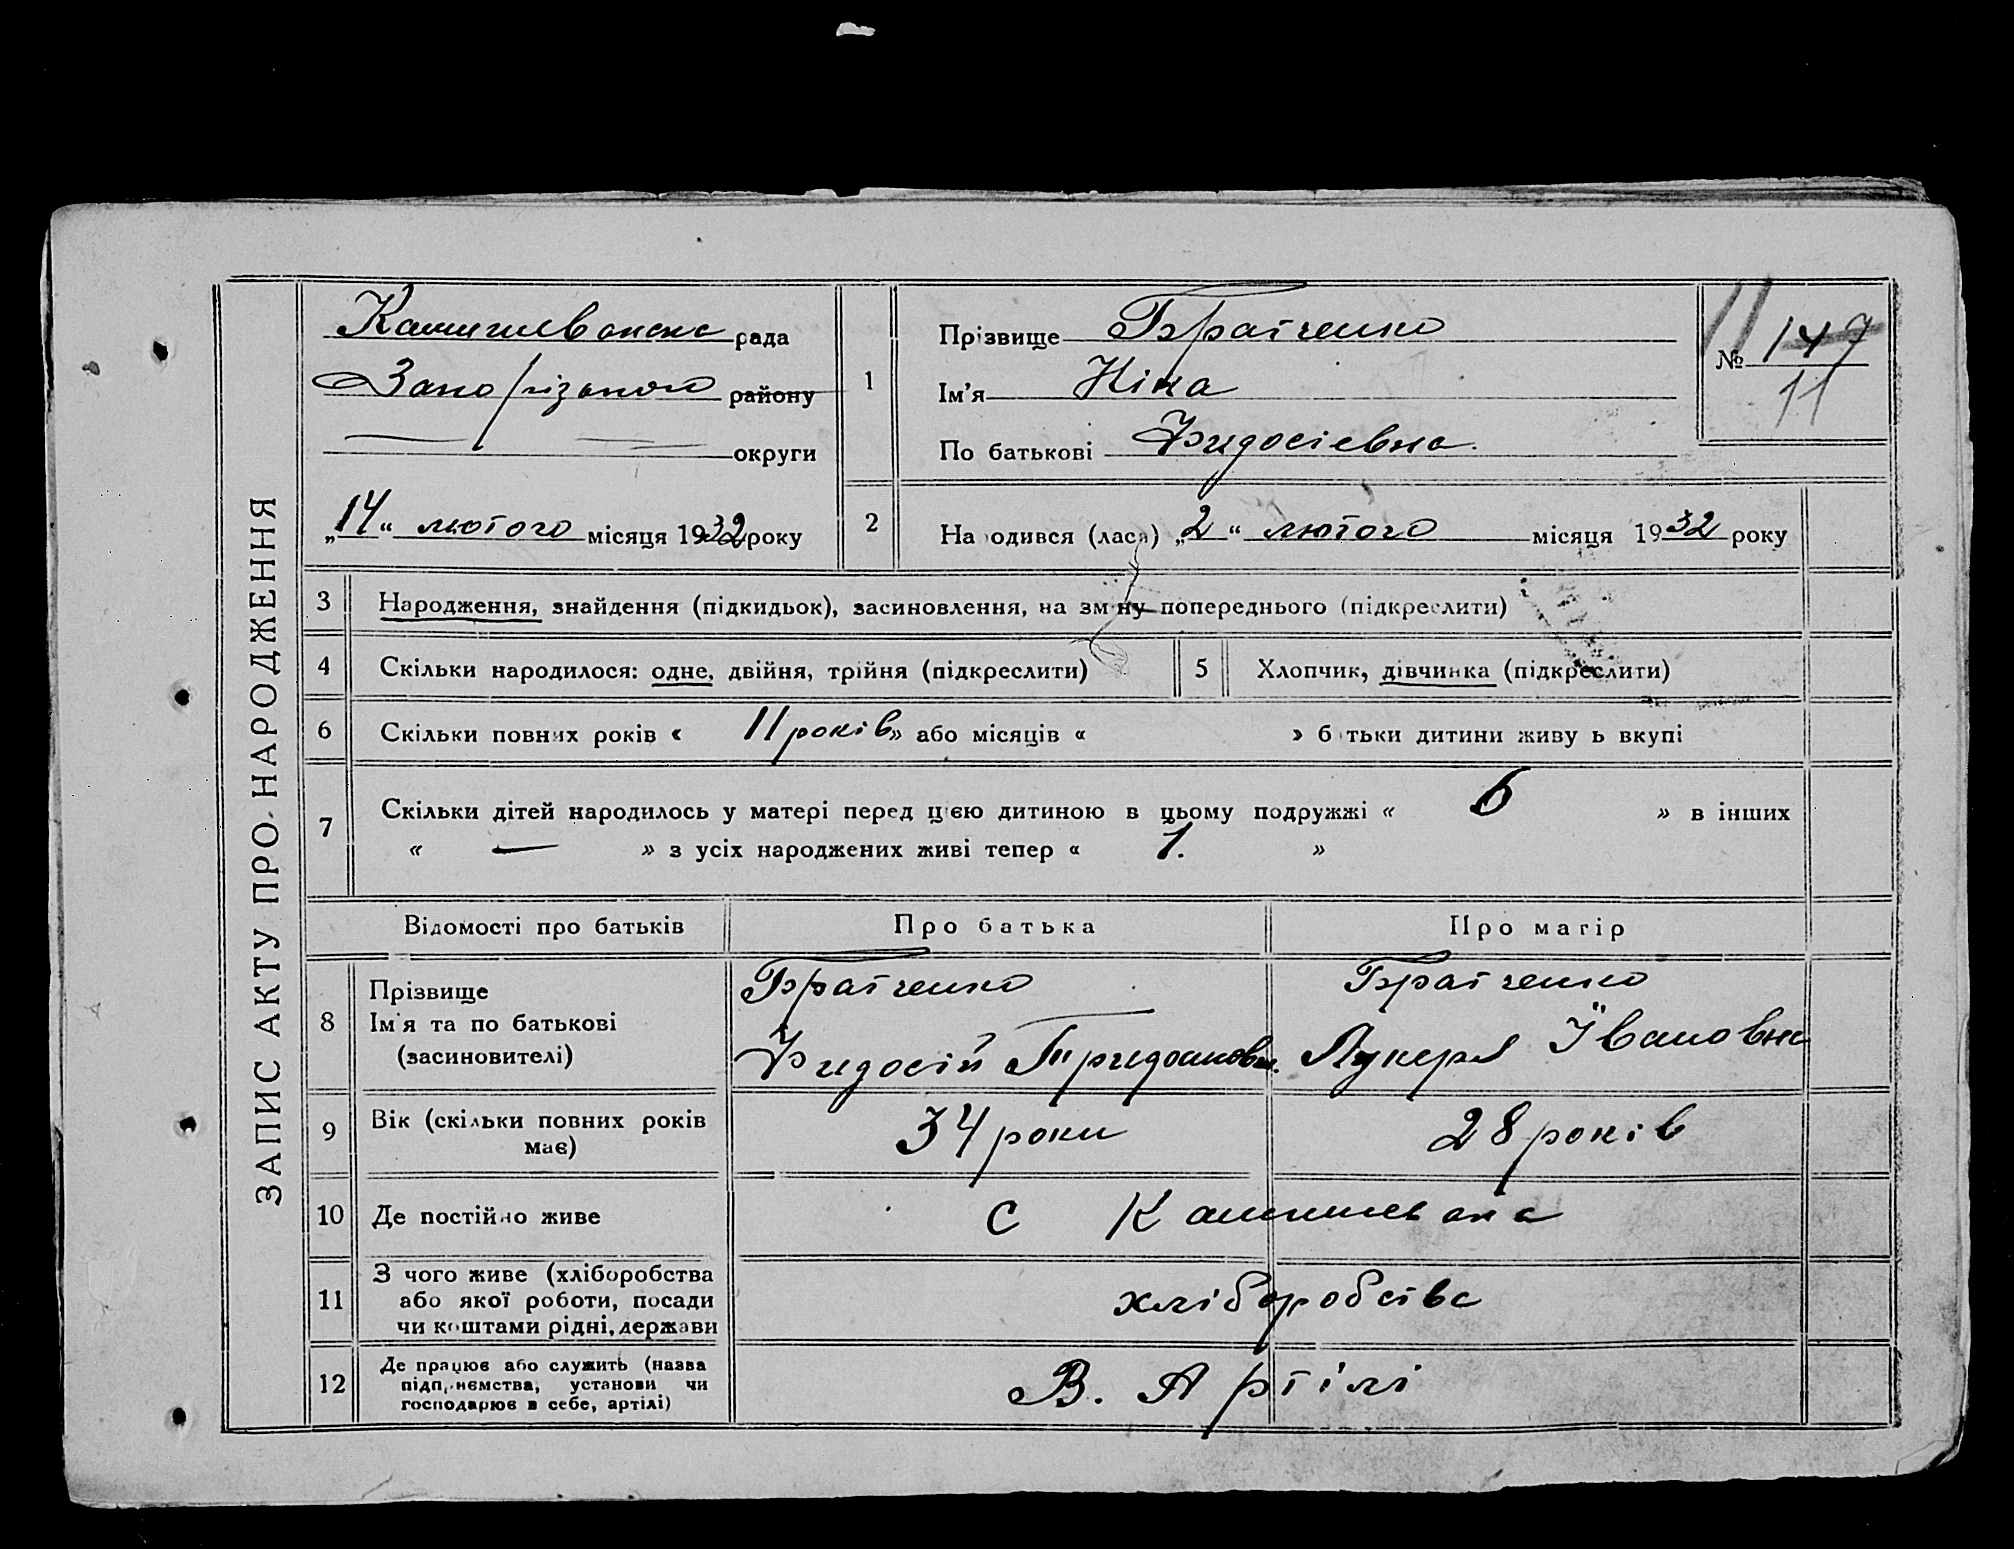 ЗАПИС АКТУ ПРО НАРОДЖЕННЯ
Камишеванска рада
Запорізького району
округи
„14“ лютого місяця 1932 року
1
Прізвище Братченко
Ім'я Ніна
По батькові Фидосіевна
11
№ 147
11
2
Народився (лася) „2“ лютого місяця 1932 року
3 Народження, знайдення (підкидьок), засиновлення, на зміну попереднього (підкреслити)
4 Скільки народилося: одне, двійня, трійня (підкреслити)
5 Хлопчик, дівчинка (підкреслити)
6 Скільки повних років « 11 років » або місяців « » батьки дитини живуть вкупі
7 Скільки дітей народилось у матері перед цією дитиною в цьому подружжі « 6 » в інших
« — » з усіх народжених живі тепер « 1. »
Відомості про батьків Про батька Про матір
8 Прізвище
Ім'я та по батькові
(засиновителі)
Братченко
Фидосій
Братченко
Лукеря Івановна
9 Вік (скільки повних років
має)
34 роки
28 років
10 Де постійно живе
с Камишеваха
11 З чого живе (хліборобства
або якої роботи, посади
чи коштами рідні, держави
хліборобства
12 Де працює або служить (назва
підприємства, установи чи
господарює в себе, артілі)
В. Артілі